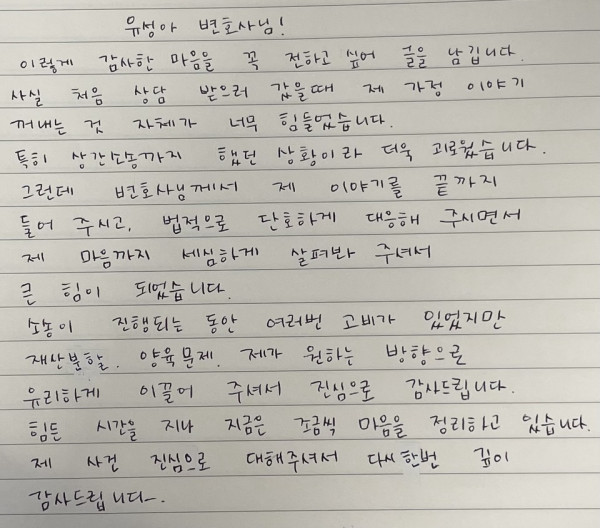 유성아 변호사님!
이렇게 감사한 마음을 꼭 전하고 싶어 글을 남깁니다.
사실 처음 상담 받으러 갔을때 제 가정 이야기
꺼내는 것 자체가 너무 힘들었습니다.
특히 상간소송까지 했던 상황이라 더욱 괴로웠습니다.
그런데 변호사님께서 제 이야기를 끝까지
들어 주시고, 법적으로 단호하게 대응해 주시면서
제 마음까지 세심하게 살펴봐 주셔서
큰 힘이 되었습니다.
소송이 진행되는 동안 여러번 고비가 있었지만
재산분할. 양육문제. 제가 원하는 방향으로
유리하게 이끌어 주셔서 진심으로 감사드립니다.
힘든 시간을 지나 지금은 조금씩 마음을 정리하고 있습니다.
제 사건 진심으로 대해주셔서 다시한번 깊이
감사드립니다-.